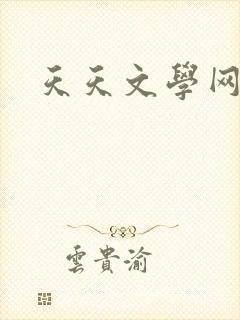 天天文學网
雲貴渝